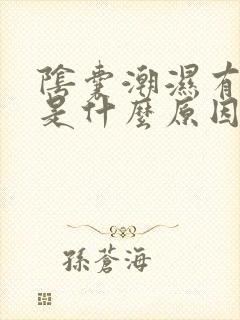 陰囊潮濕有
是什麼原因
孫蒼海